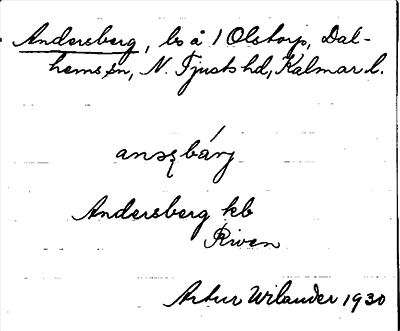 Andersberg, bs å 1 Olstorp, Dal-
hems sn, N. Tjusts hd, Kalmar l.
Andersberg kb
Riven
Artur Wilander 1930